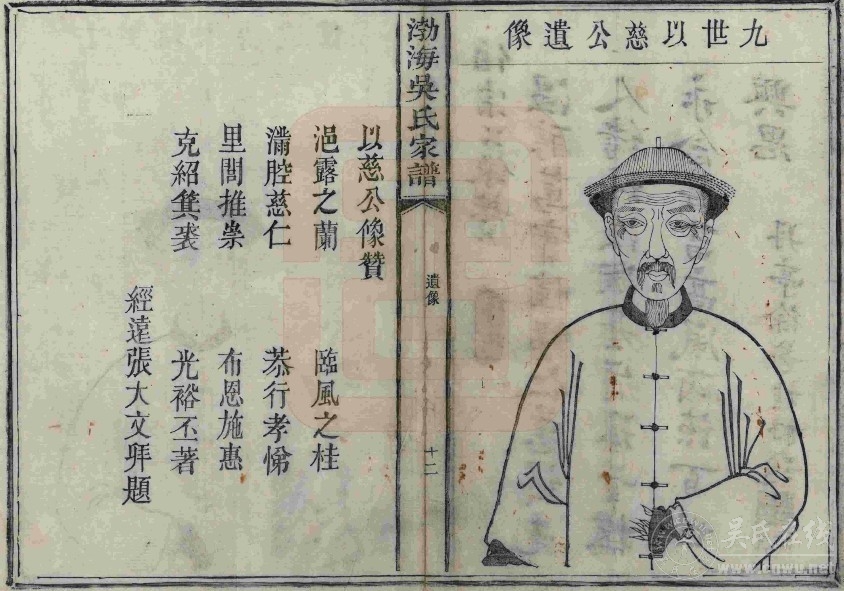 九世以慈公遺像
渤海吳氏家譜
遺像
十二
以慈公像贊
浥露之蘭 臨風之桂
滿腔慈仁 恭行孝悌
里閭推崇 布恩施惠
克紹箕裘 光裕丕著
經遠張大文拜題
吴氏在线
www.cnwu.net